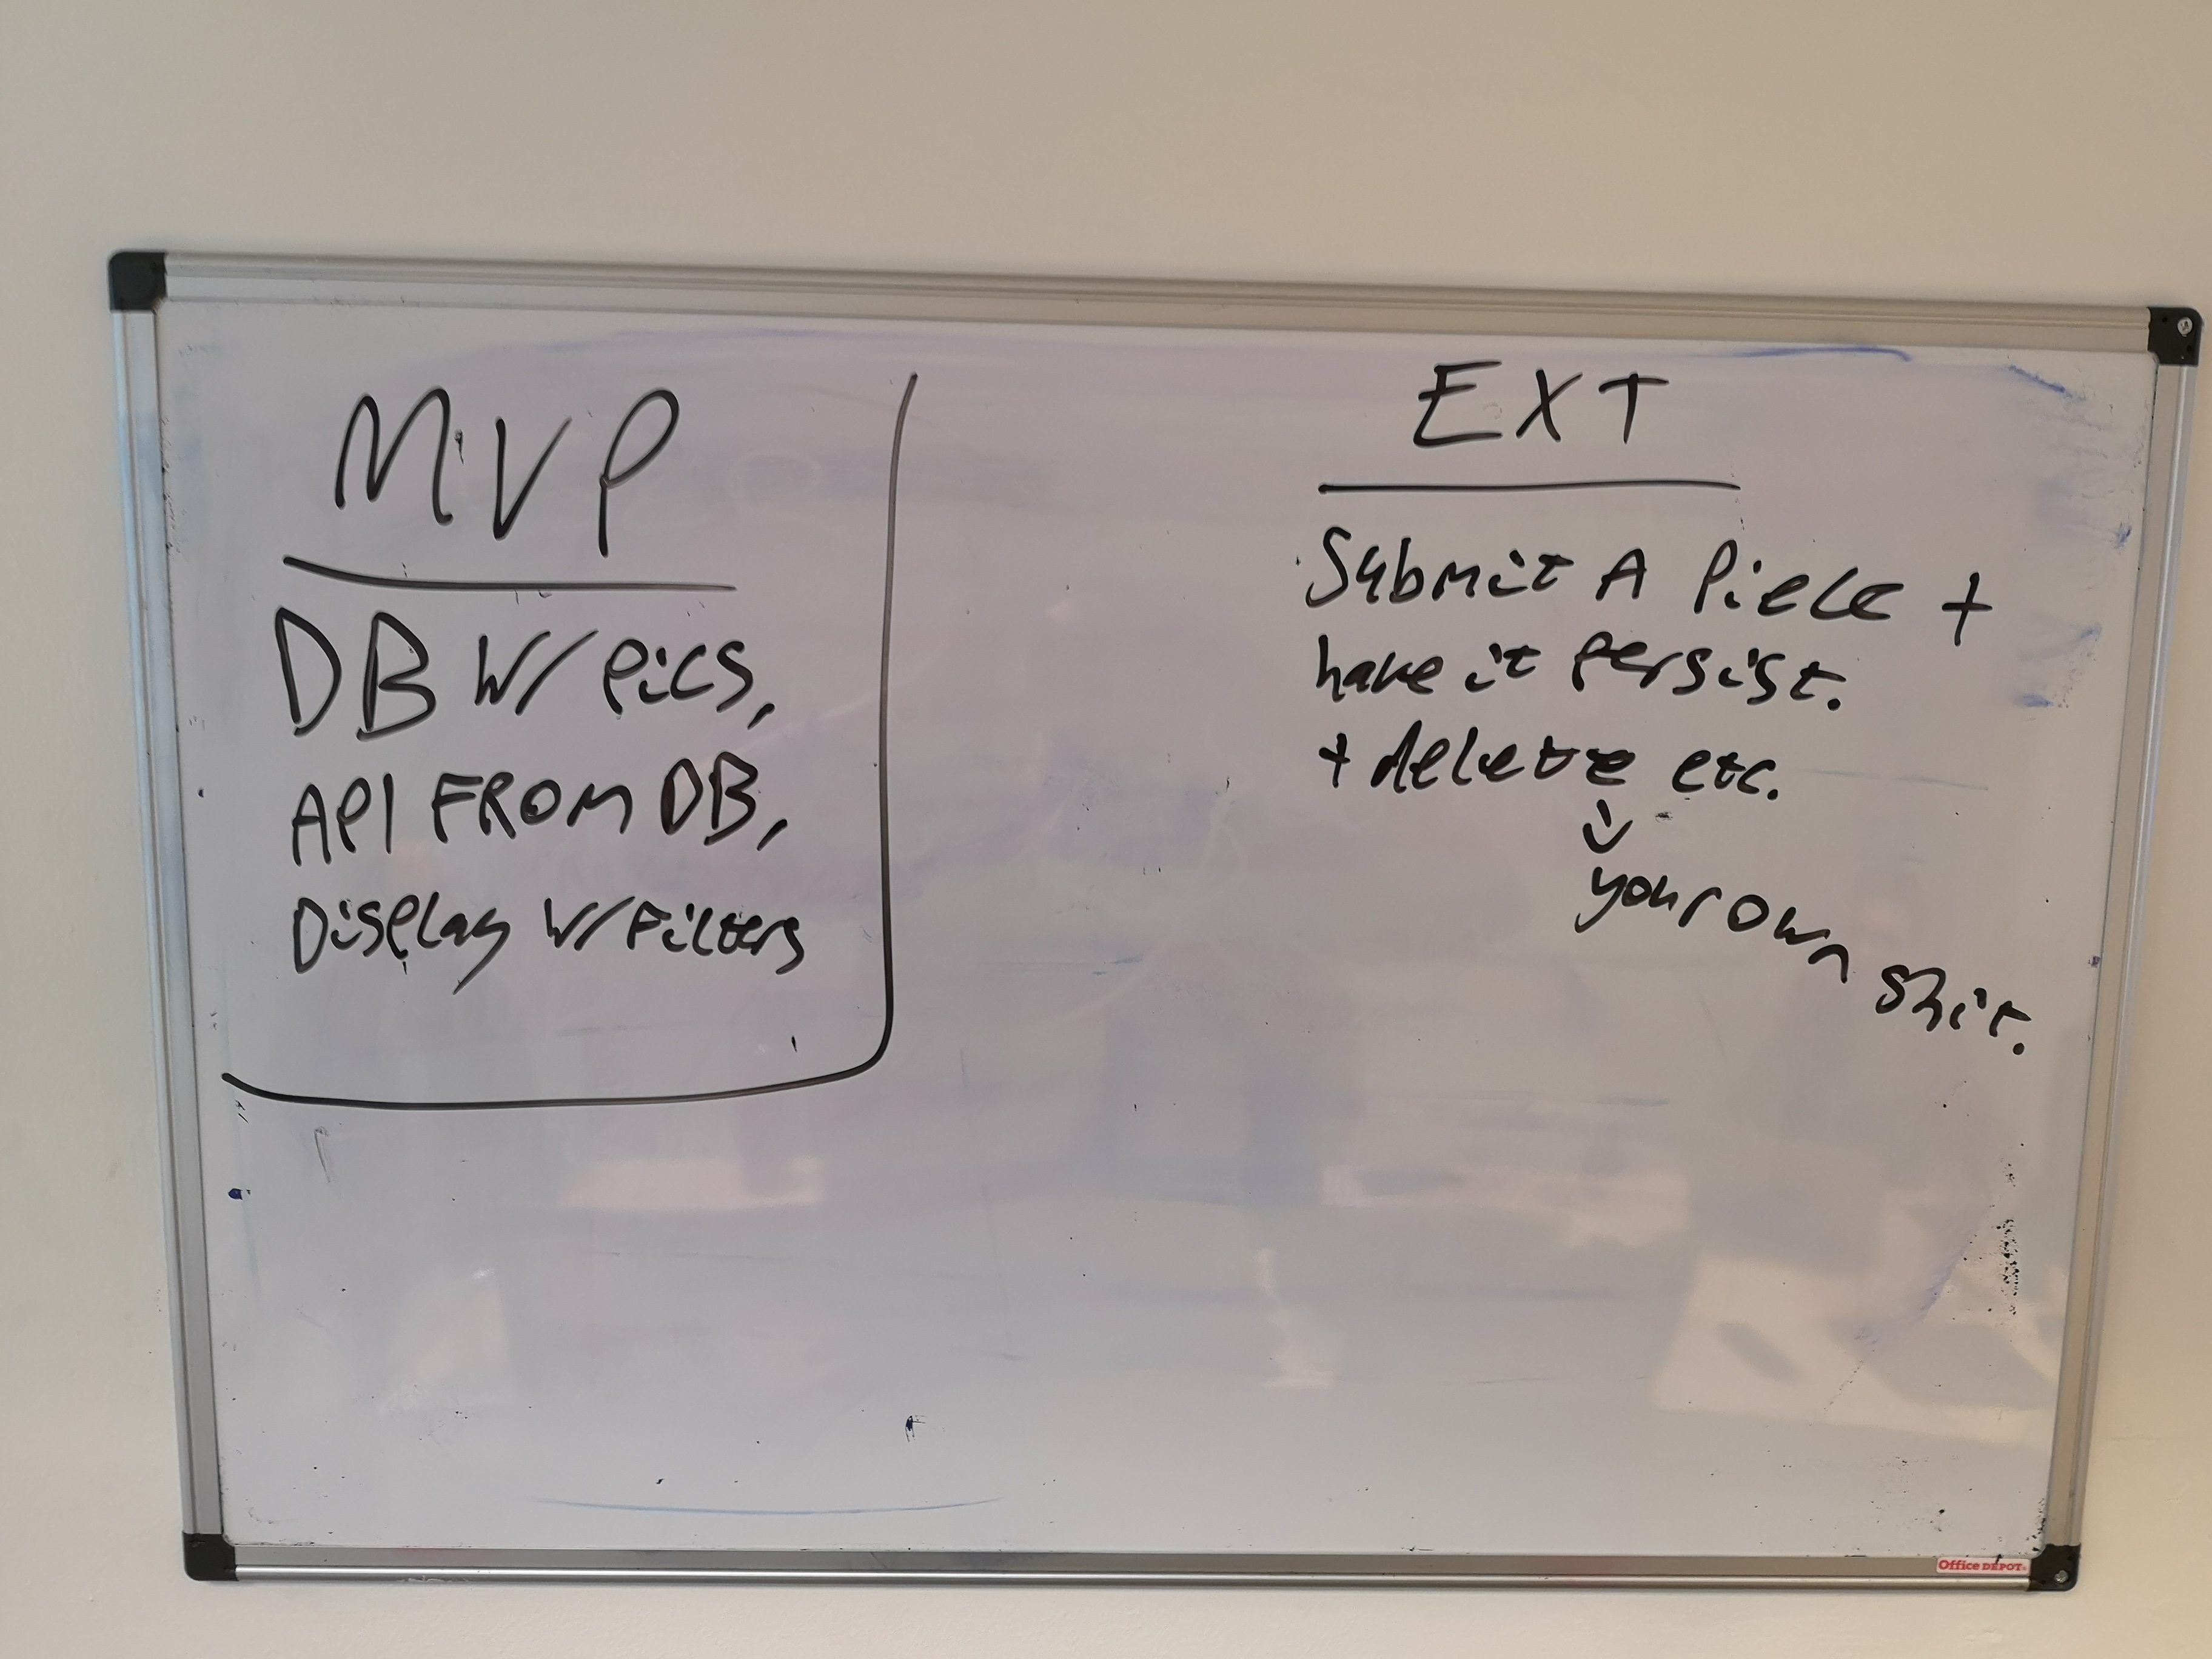 MVP
DB W/ Pics,
API FROM DB,
Display W/ Filters
EXT
Submit A Piece +
have it Persist.
+ delete etc.
your own shit.
Office DEPOT